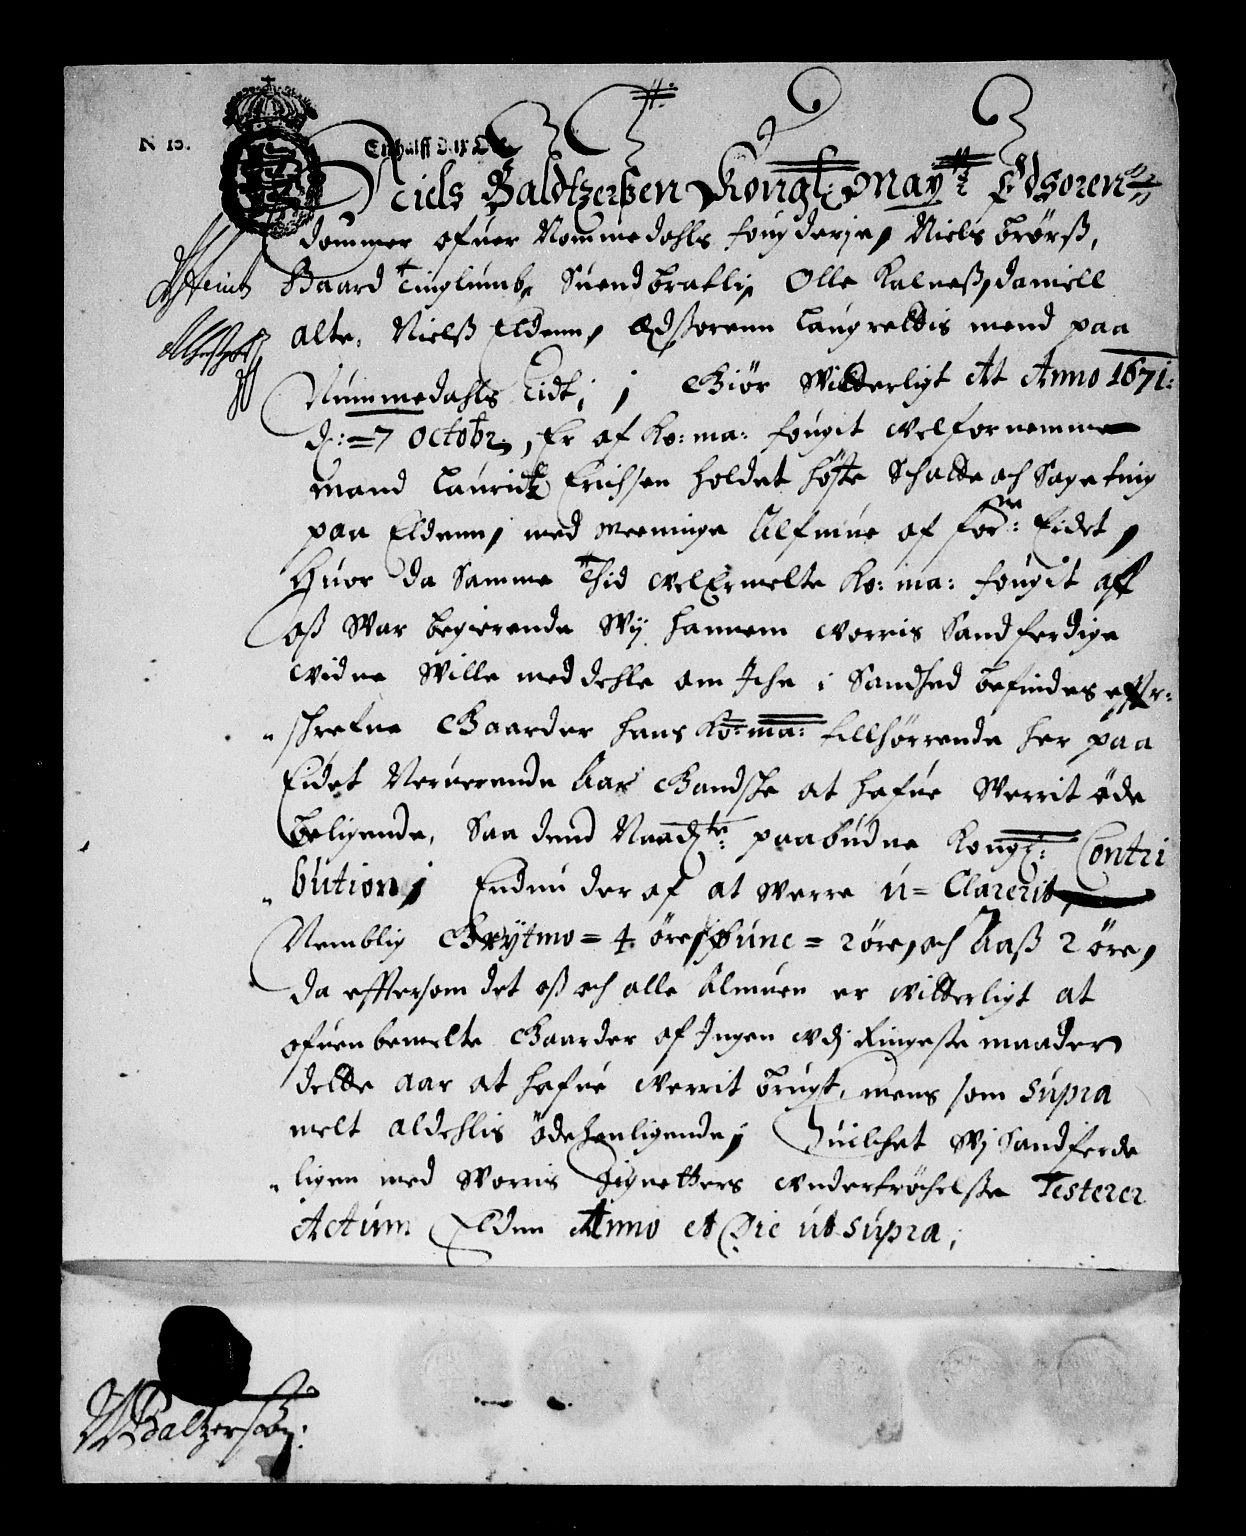 N 15.
En halff
Niels Baldtzerßen Kongl: May:tz Edsoren
dommer ofuer Nommedahls fougderje, Niels brörß,
Baard Tinglumb, Suend bratli, Olle Kalneß, daniell
alte, Nielß Eldenn, Edssorenn Laugrettis mend paa
Nummedahls Eidt; Giör Witterligt At Anno 1671:
d: 7 Octobr, Er af Ko: ma: fougit velfornemme
mand Lauridtz Erichsen holdet höste Schatte och Sage ting
paa Eldenn, med meninge Allmue af for:ne Eidet,
Huor da Samme Thid velErmelte Ko: ma: fougit aff
oß War begierende Wij hannem worris Sandferdige
vidne Wille meddehle om Iche i Sandhed befindes effter:
schrefne Gaarder hans Ko: ma: tillhörrende her paa
Eidet Neruerende Aar Gandsche at hafue Werrit öde
beligende, Saa dend Naad:te paabudne Kongl: Contri
bution, Endnu der af at Werre u= Clarerit,
Nemblig Grytmo = 4 öre, = 2 öre, och Aaß 2 öre,
da efftersom det oß och alle Almuen er vitterligt at
ofuenbemelte Gaarder af Ingen vdj Ringeste maader
dette aar at hafue verrit brugt, mens som supra
melt aldehlis ödehenligende; Huilchet Wj Sandferde
ligen med Worris Signetters vndertröchelße Testerer
Actum Elden Anno et Die ut supra;
NBaltzersøn: